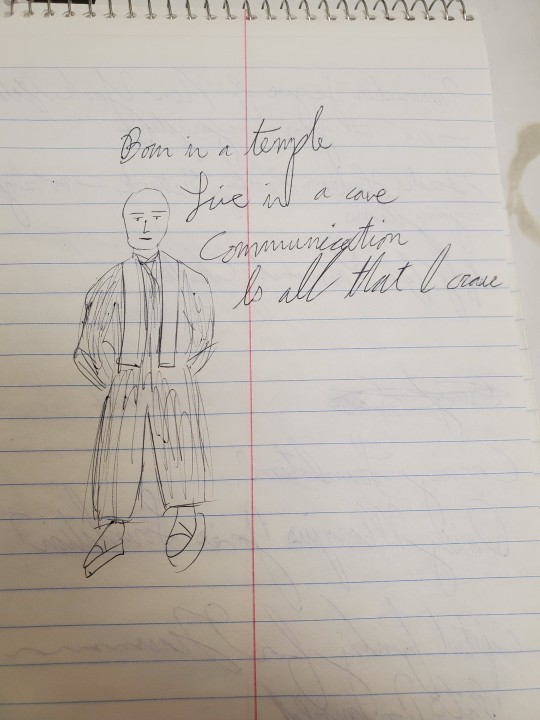 Born in a temple
Live in a cave
Communication
Is all that I crave